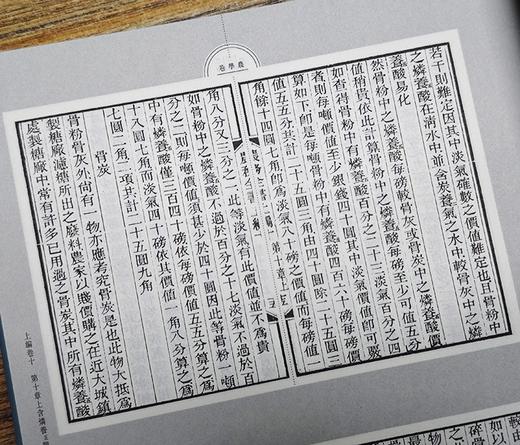 農學卷
若干則難定因其中淡氣確數之價值難定也且骨粉中
之燐養酸在滴水中並含炭養氣之水中較骨灰中之燐
養酸易化
然骨粉中之燐養酸每磅較骨灰或骨炭中之燐養酸價
值稍貴依此計算骨粉中之燐養酸每磅至少可值五分
如查得骨粉中有燐養酸百分之二十三淡氣百分之四
者則每噸價值至少銀錢四十圓其中淡氣價值即可嚴
算如下即是每噸骨粉中有燐養酸四百六十磅每磅價
值五分五共計二十五圓三角由四十圓除二十五圓三
角餘十四圓七角即為淡氣八十磅之價值而每磅值一
第十章上
角八分又三分之一此等淡氣有此價值並不為貴
如骨粉中之燐養酸不過於百分之十七淡氣不過於百
分之二則每噸價值須甚少於四十圓因此等骨粉一噸
中有燐養酸僅三百四十磅依每磅價值五分五算之為
十八圓七角而淡氣四十磅依其價值一角八分算之為
七圓二角二項共計二十五圓九角
骨炭
骨粉骨灰外尚有一物亦應考究骨炭是也此物大抵為
製糖廠濾糖所出之廢料農家以賤價購之在近大城鎮
處製糖廠中常有許多已用過之骨炭其中所有燐養酸
上編卷十
第十章上含燐養